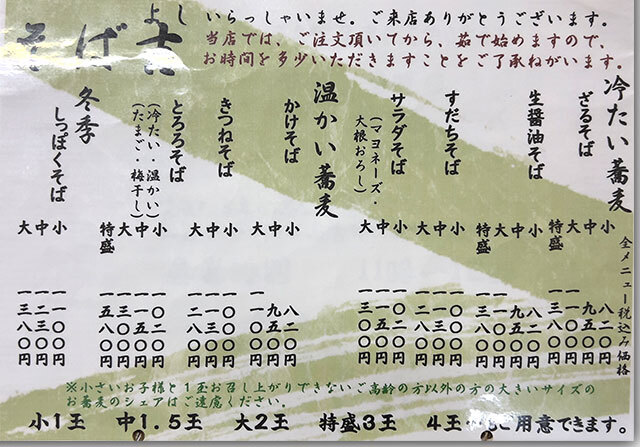 そば吉
よし
いらっしゃいませ。ご来店ありがとうございます。
当店では、ご注文頂いてから、茹で始めますので、
お時間を多少いただきますことをご了承ねがいます。
全メニュー税込み価格
冷たい蕎麦
ざるそば
小 八二〇円
中 九五〇円
大 一一〇〇円
特盛 一三八〇円
生醤油そば
小 八二〇円
中 九五〇円
大 一一〇〇円
特盛 一三八〇円
すだちそば
小
中 一一五〇円
大 一三〇〇円
サラダそば
(マヨネーズ・
大根おろし)
小 一〇二〇円
中 一一五〇円
大 一三〇〇円
温かい蕎麦
かけそば
小 八二〇円
中 九五〇円
大 一一〇〇円
きつねそば
小 一〇〇〇円
中 一一三〇円
大 一二八〇円
とろろそば
(冷たい・温かい)
(たまご・梅干し)
小 一〇二〇円
中 一一五〇円
大 一三〇〇円
特盛 一五八〇円
冬季
しっぽくそば
小 一一〇〇円
中 一二三〇円
大 一三八〇円
※小さいお子様と1玉お召し上がりできないご高齢の方以外の方の大きいサイズの
お蕎麦のシェアはご遠慮ください。
小1玉 中1.5玉 大2玉 特盛3玉 4玉〜もご用意できます。